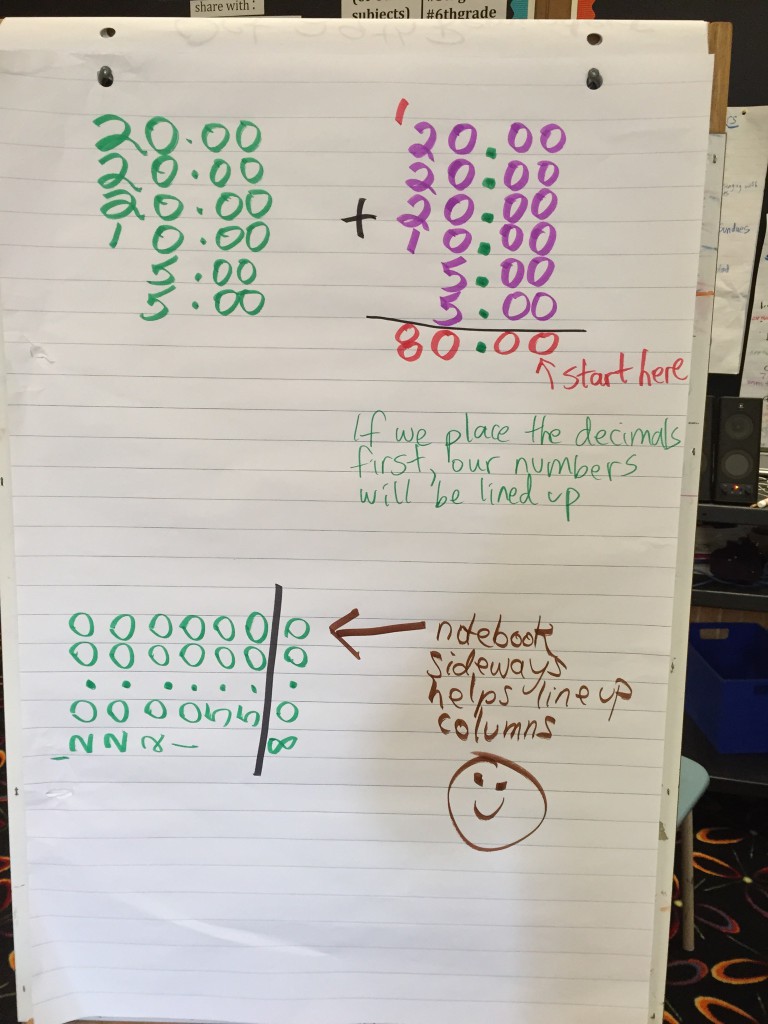 share with:
subjects)
#6thgrade
20.00
20.00
20.00
10.00
5.00
5.00
1
20.00
20.00
+ 20.00
10.00
5.00
5.00
80.00
start here
If we place the decimals
first, our numbers
will be lined up
0 0 0 0 0 0 0
0 0 0 0 0 0 0
. . . . . . .
0 0 0 0 5 5 0
1 2 2 2 1 8
notebook
sideways
helps line up
columns